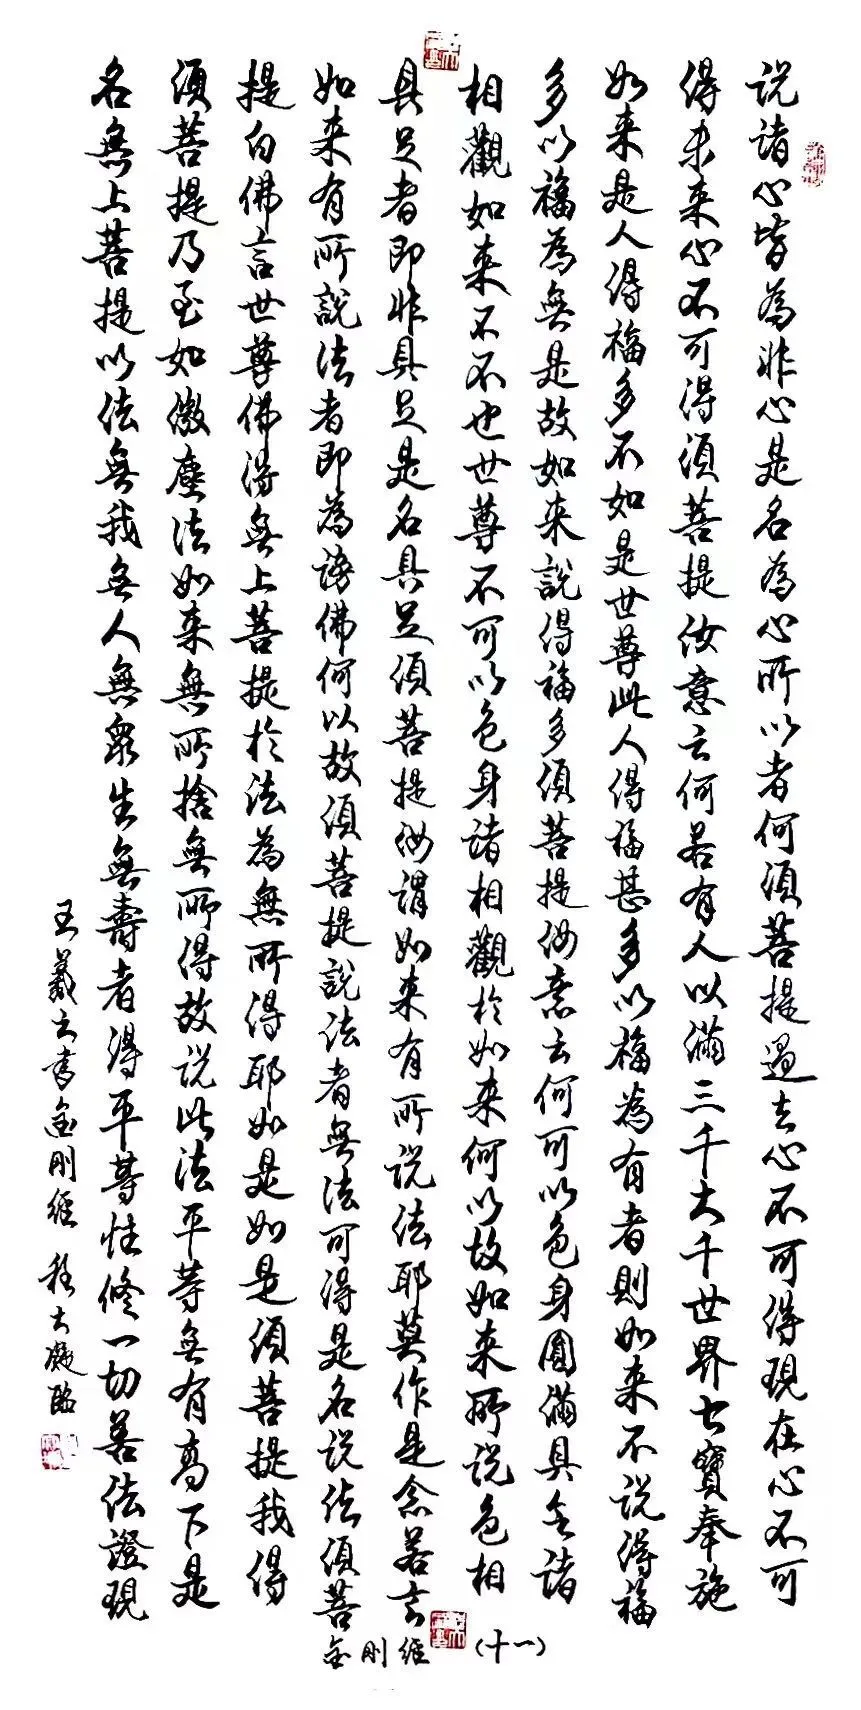 说诸心皆為非心是名為心所以者何須菩提過去心不可得現在心不可
得未来心不可得須菩提汝意云何若有人以滿三千大千世界七寶奉施
如来是人得福多不如是世尊此人得福甚多以福為有者則如来不说得福
多以福為無是故如来說得福多須菩提汝意云何可以色身圓滿具足諸
相觀如来不不也世尊不可以色身諸相觀於如来何以故如来所说色相
具足者即非具足是名具足須菩提汝謂如来有所说法耶莫作是念若言
如来有所說法者即為謗佛何以故須菩提說法者無法可得是名说法須菩
提白佛言世尊佛得無上菩提於法為無所得耶如是如是須菩提我得
須菩提乃至如微塵法如来無所捨無所得故说此法平等無有高下是
名無上菩提以法無我無人無眾生無壽者得平等性修一切善法證現
王羲之書金刚經 程大凝臨
金刚經 （十一）